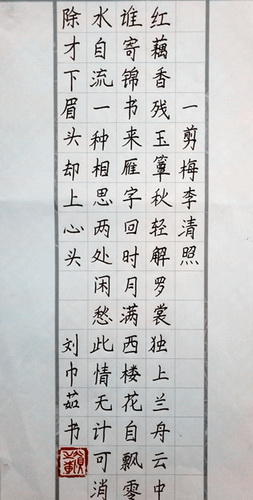 一剪梅李清照
红藕香残玉簟秋轻解罗裳独上兰舟云中
谁寄锦书来雁字回时月满西楼花自飘零
水自流一种相思两处闲愁此情无计可消
除才下眉头却上心头 刘巾茹书